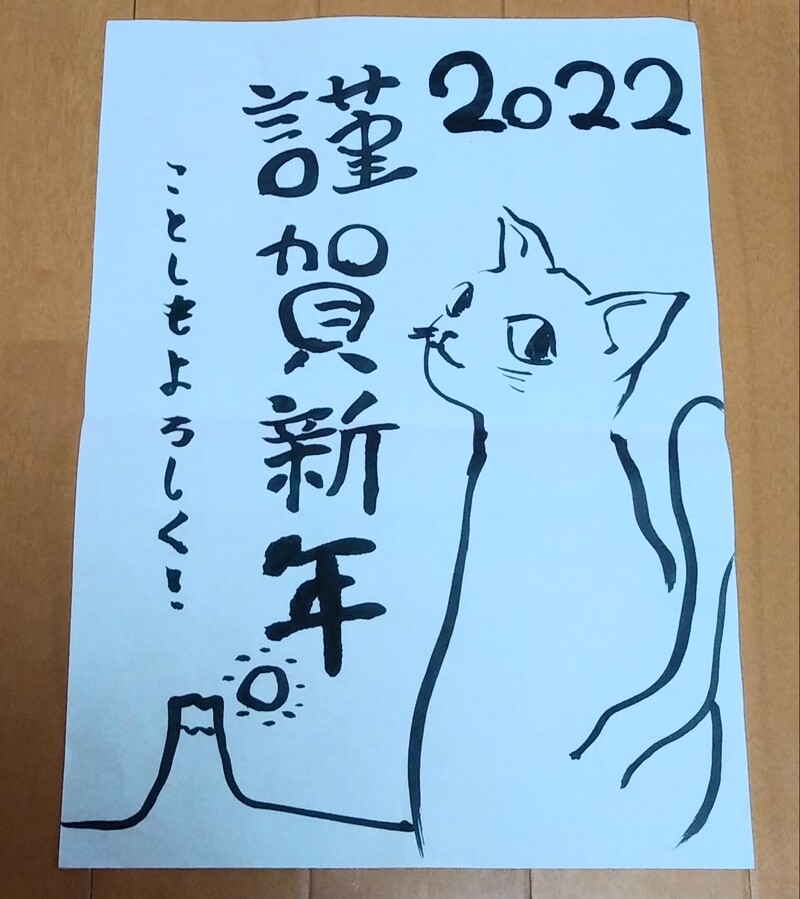 2022
謹賀新年
ことしもよろしく!